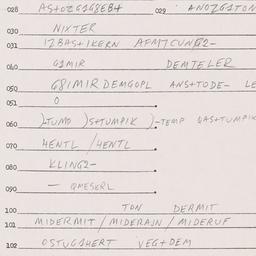 028 AS+OZG1G8EB+ 029 ANOZG1TON
030 NIXTER
031 IZBAS+IKERN AFM7CUNG2-
040 G1MIR DEMTELER
050 G81MIRDEMGOPL ANS+TODE- LE
051 O
060 )TUMD )S+TUMPIK )-TEMP QAS+TUMPIK
070 HENTL / HENTL
080 KLING2-
090 - QMESERL
100 TON DERMIT
101 MIDERMIT / MIDERAJN / MIDERUF
102 OSTUG1HERT VEG+DEM